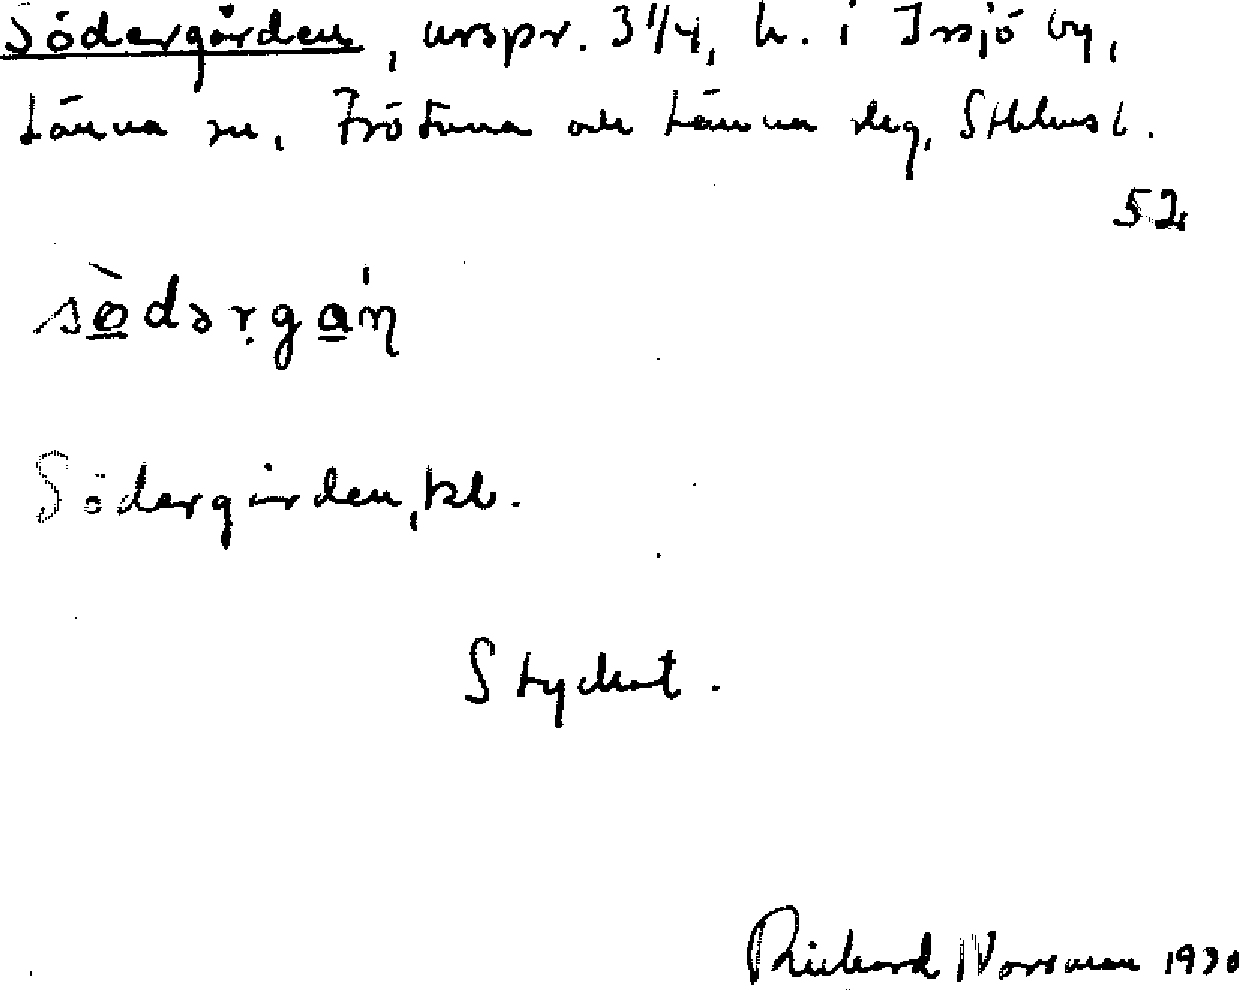 Södergården, urspr. 3 1/4, h. i Issjö by,
Länna sn, Frötuna och Länna slg, Sthlms l.
52
södərga̲'n
Södergården, kb.
Styckat.
Richard Norrman 1930